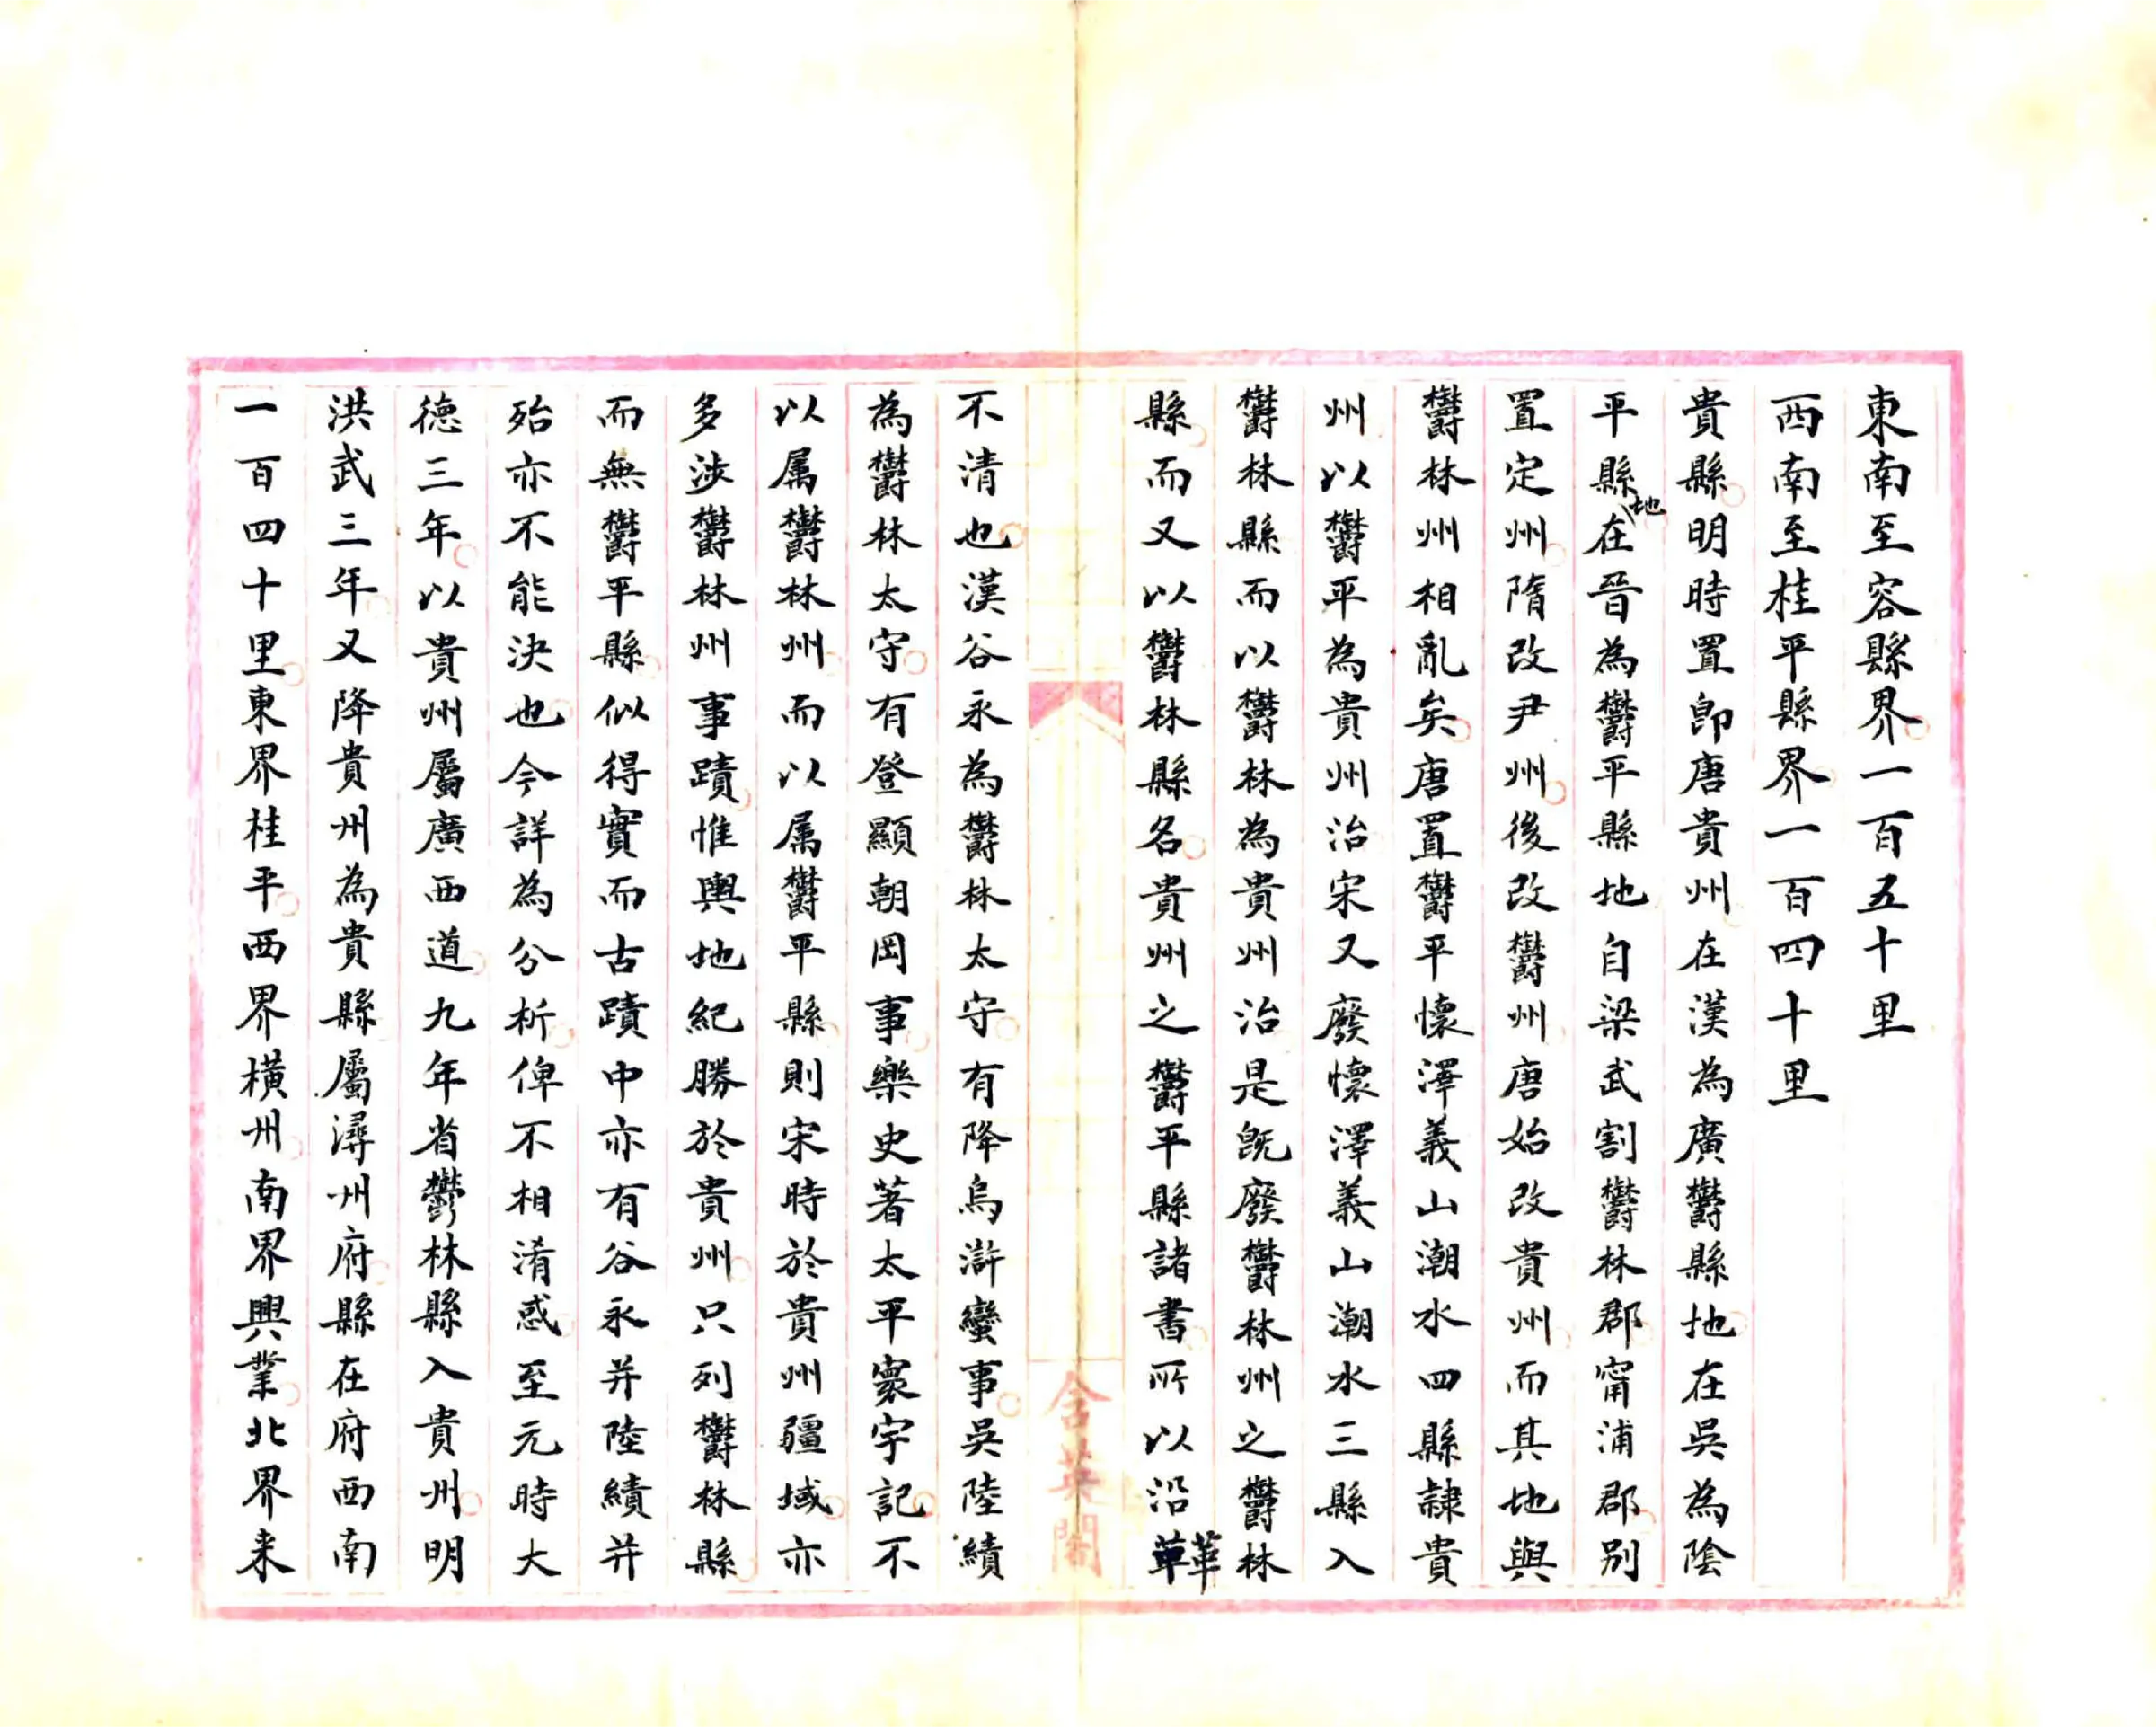 東南至容縣界一百五十里
西南至桂平縣界一百四十里
貴縣明時置即唐貴州在漢為廣欝縣地在吳為陰
平縣地在晉為欝平縣地自梁武割欝林郡甯浦郡別
置定州隋改尹州後改欝州唐始改貴州而其地與
欝林州相亂矣唐置欝平懷澤義山潮水四縣隸貴
州以欝平為貴州治宋又廢懷澤義山潮水三縣入
欝林縣而以欝林為貴州治是既廢欝林州之欝林
縣而又以欝林縣名貴州之欝平縣諸書所以沿革
不清也漢谷永為欝林太守有降烏滸蠻事吳陸績
為欝林太守有登顯朝岡事樂史著太平寰宇記不
以属欝林州而以属欝平縣則宋時於貴州疆域亦
多涉欝林州事蹟惟輿地紀勝於貴州只列欝林縣
而無欝平縣似得實而古蹟中亦有谷永井陸績井
殆亦不能決也今詳為分析俾不相淆惑至元時大
德三年以貴州屬廣西道九年省鬱林縣入貴州明
洪武三年又降貴州為貴縣屬潯州府縣在府西南
一百四十里東界桂平西界橫州南界興業北界来
含英閣